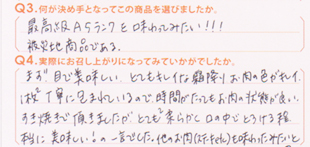 Q3.何が決め手となってこの商品を選びましたか。
最高級A5ランクを味わってみたい!!!
被災地商品である。
Q4.実際にお召し上がりになってみていかがでしたか。
まず目で美味しい。とてもキレイな霜降りお肉の色がキレイ、
1枚1枚丁寧に包まれているので、時間がたってもお肉の状態が良い。
すき焼きで頂きましたがとても柔らかく口の中でとける程
美味しい!の一言でした。他のお肉(ステーキetc)も味わってみたいと